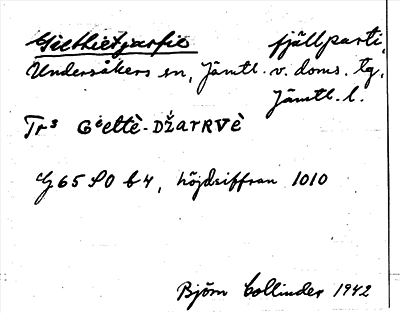 Gielhietjarfie fjällparti,
Undersåkers sn, Jämtl. v. doms. tg,
Jämtl. l.
Trs Gⁱeltè-DŽATRVè
G 65 SO b 4, höjdsiffran 1010
Björn Collinder 1942